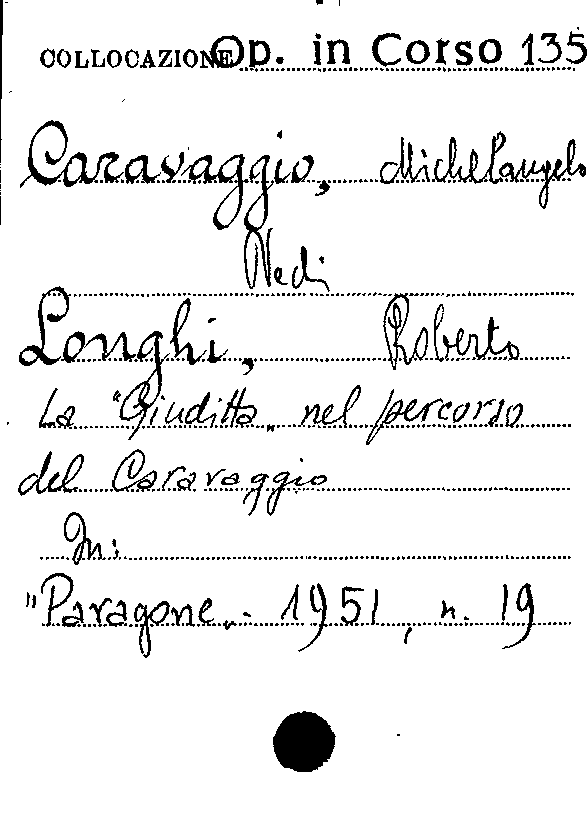 COLLOCAZIONE Op. in Corso 135
Caravaggio, Michelangelo
Vedi
Longhi, Roberto
La "Giuditta„ nel percorso
del Caravaggio
In:
"Paragone„. 1951, n. 19